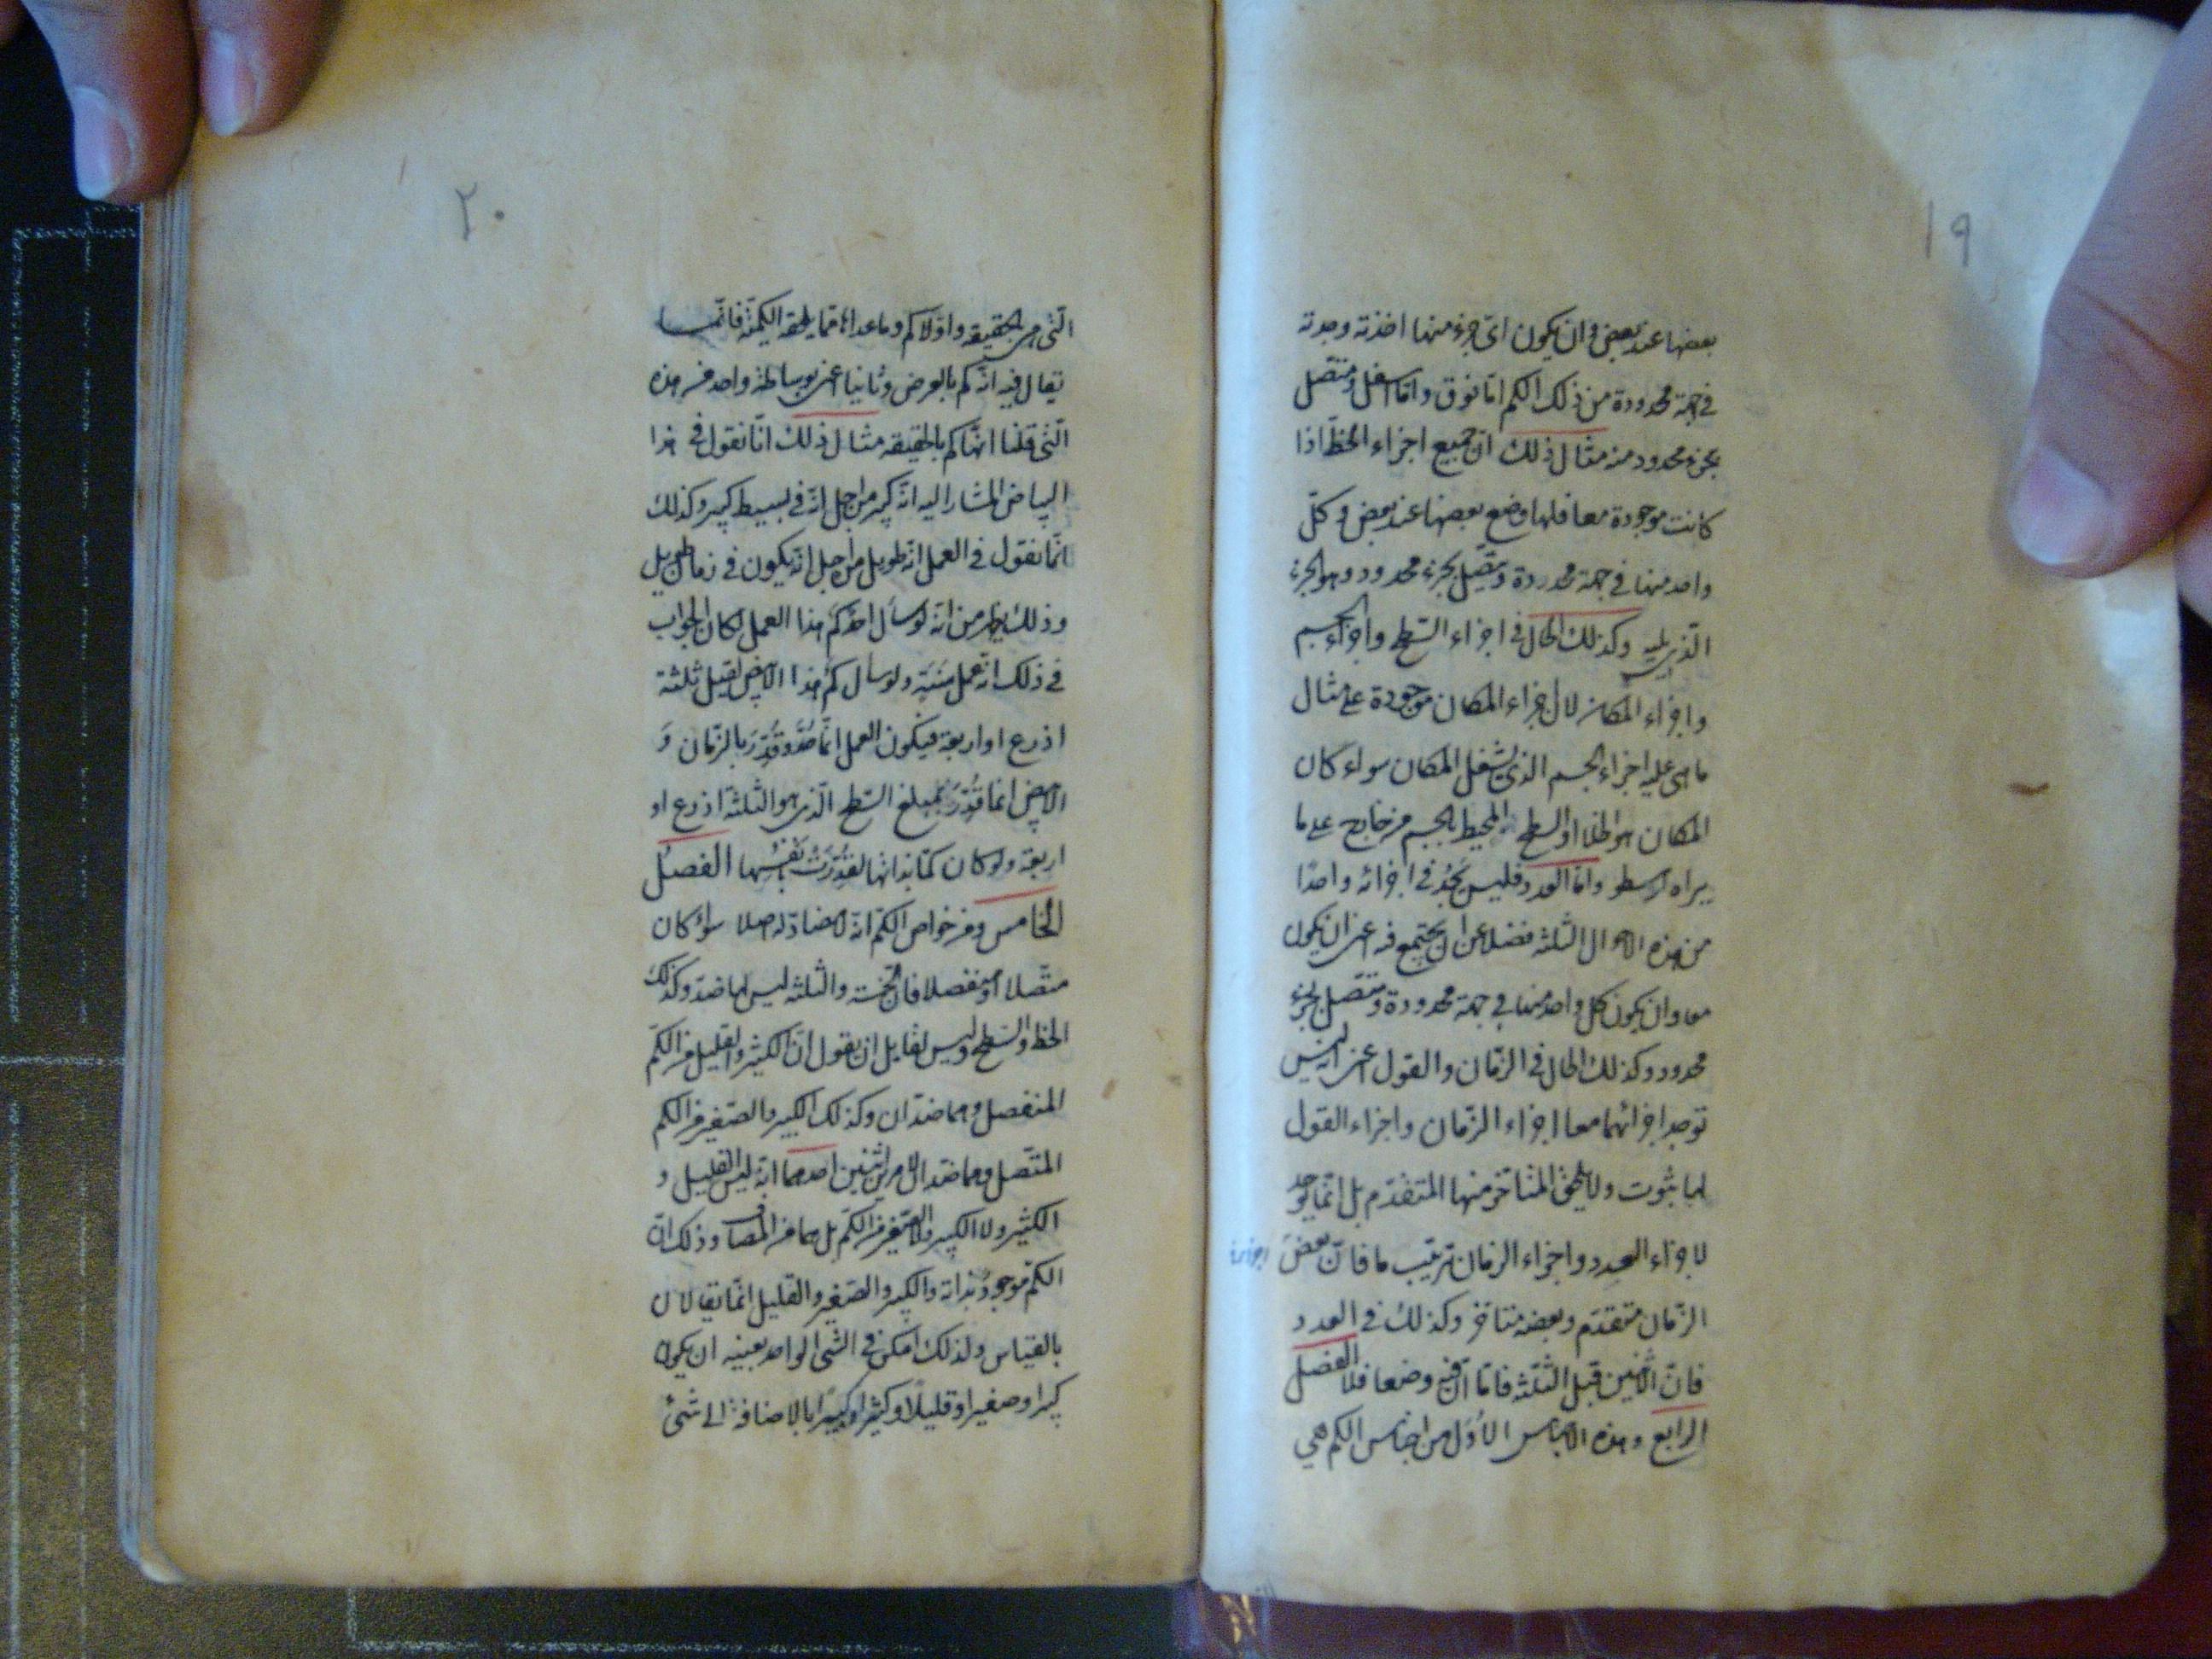 ١٩
بعضها عند بعض وان يكون اى جزء منها اخذته وجدته
فى جهة محدودة من ذلك الكم اما فوق واما اسفل ومتصل
بجزء محدود منه مثال ذلك ان جميع اجزاء الخط اذا
كانت موجودة معا فلها وضع بعضها عند بعض وكل
واحد منها فى جهة محدودة ويتصل بجزء محدود وهو الجزء
الذى يليه وكذلك الحال فى اجزاء السطح واجزاء الجسم
واجزاء المكان لان اجزاء المكان موجودة على مثال
ما هى عليه اجزاء الجسم الذى يشغل المكان سواء كان
المكان هو الخلا او السطح المحيط بالجسم من خارج على ما
يراه ارسطو واما العدد فليس نجد فى اجزائه واحدًا
من هذه الاحوال الثلثة فضلا عن ان يجتمع فيه اعنى ان يكون
معا وان يكون كل واحد منها فى جهة محدودة ومتصل بجزء
محدود وكذلك الحال فى الزمان والقول اعنى انه ليس
توجد اجزائهما معا اجزاء الزمان واجزاء القول
لها ثبوت ولا يلحق المتاخر منها المتقدم بل انما يوجد
لاجزاء العدد واجزاء الزمان ترتيب ما فان بعض
اجزاء
الزمان متقدم وبعضه متاخر وكذلك فى العدد
فان الاثنين قبل الثلثة فاما ان فيه وضعا فلا الفصل
الرابع وهذه الاجناس الاُوَل من اجناس الكم هي
٢٠
التى هى بالحقيقه واولا كم وما عداها مما يلحقه الكمية فانما
يقال فيه انه كم بالعرض وثانيا اعنى بوساطة واحد من هذه
التى قلنا انها كم بالحقيقه مثال ذلك انا نقول فى هذا
البياض المشار اليه انه كبير من اجل انه فى بسيط كبير وكذلك
انما نقول فى العمل انه طويل من اجل انه يكون فى زمان طويل
وذلك يظهر من انه لو سأل احد كم هذا العمل لكان الجواب
فى ذلك انه عمل سَنَةٍ ولو سأل كم هذا الابيض لقيل ثلثة
اذرع او اربعة فيكون العمل انما حُدَّ وقُدِّرَ بالزمان وَ
الابيض انما قُدِّرَ بمبلغ السطح الذى هو الثلثة اذرع او
اربعة ولو كان كمّا بذاتها لقُدِّرَتْ بنَفْسِها الفصل
الخامس ومن خواص الكم انه لا مضادّ له اصلا سواء كان
متصلا او منفصلا فان الخمسة والثلثة ليس لها ضد وكذلك
الخط والسطح وليس لقايل ان يقول ان الكثير والقليل من الكم
المنفصل وهما ضدان وكذلك الكبير والصغير من الكم
المتصل وهما ضدان لامرين اثنين احدهما انه ليس القليل و
الكثير ولا الكبير والصغير من الكم بل هما من المضاف وذلك ان
الكم موجود بذاته والكبير والصغير والقليل انما يقالان
بالقياس ولذلك امكن فى الشى الواحد بعينه ان يكون
كبيرا وصغيرا وقليلًا وكثيرا وكبيرًا بالاضافة الى شئ